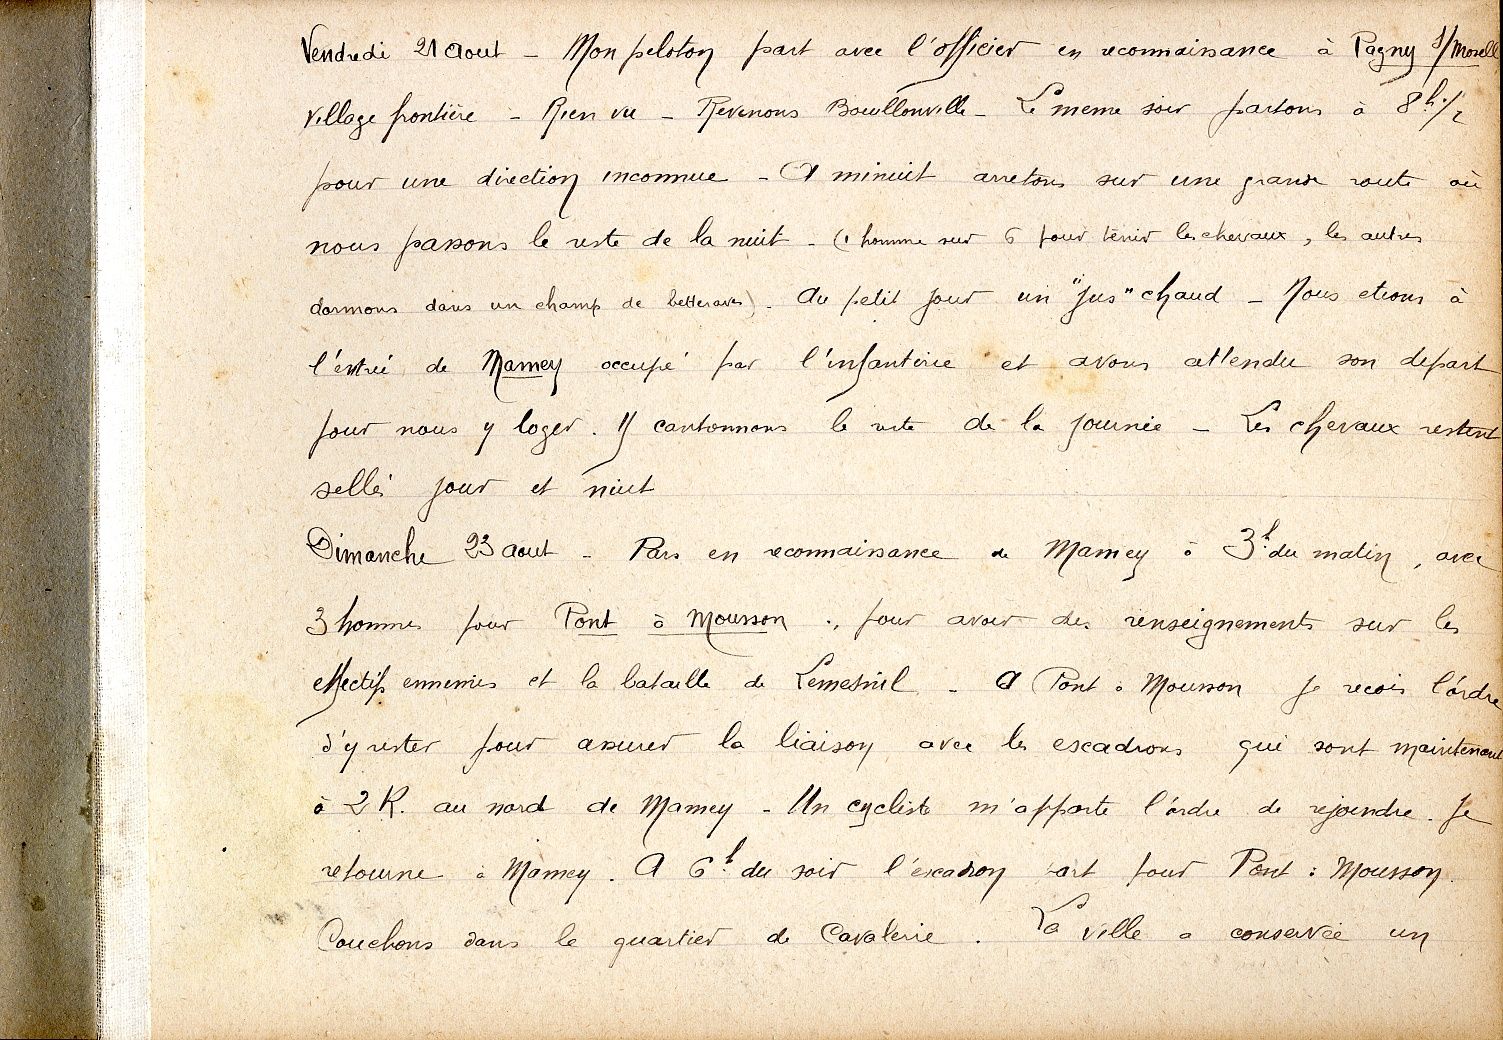 Vendredi 21 Aout - Mon peloton part avec l'officier en reconnaissance à Pagny s/Moselle
village frontière - Rien vu - Revenons Bouillonville - Le meme soir partons à 8h 1/2
pour une direction inconnue - A minuit arretons sur une grande route où
nous passons le reste de la nuit - (1 homme sur 6 pour tenir les chevaux, les autres
dormons dans un champ de betteraves). Au petit jour un "jus" chaud - Nous etions à
l'entrée de Mamey occupé par l'infanterie et avons attendu son depart
pour nous y loger. Y cantonnons le reste de la journée - Les chevaux restent
sellés jour et nuit
Dimanche 23 Aout - Pars en reconnaissance de Mamey à 3h du matin, avec
3 hommes pour Pont à Mousson ., pour avoir des renseignements sur les
effectifs ennemies et la bataille de Lemesnil - A Pont à Mousson je recois l'ordre
d'y rester pour assurer la liaison avec les escadrons qui sont maintenant
à 2 K. au nord de Mamey - Un cycliste m'apporte l'ordre de rejoindre. Je
retourne à Mamey. A 6h du soir l'escadron part pour Pont à Mousson.
Couchons dans le quartier de Cavalerie. La ville a conservée un